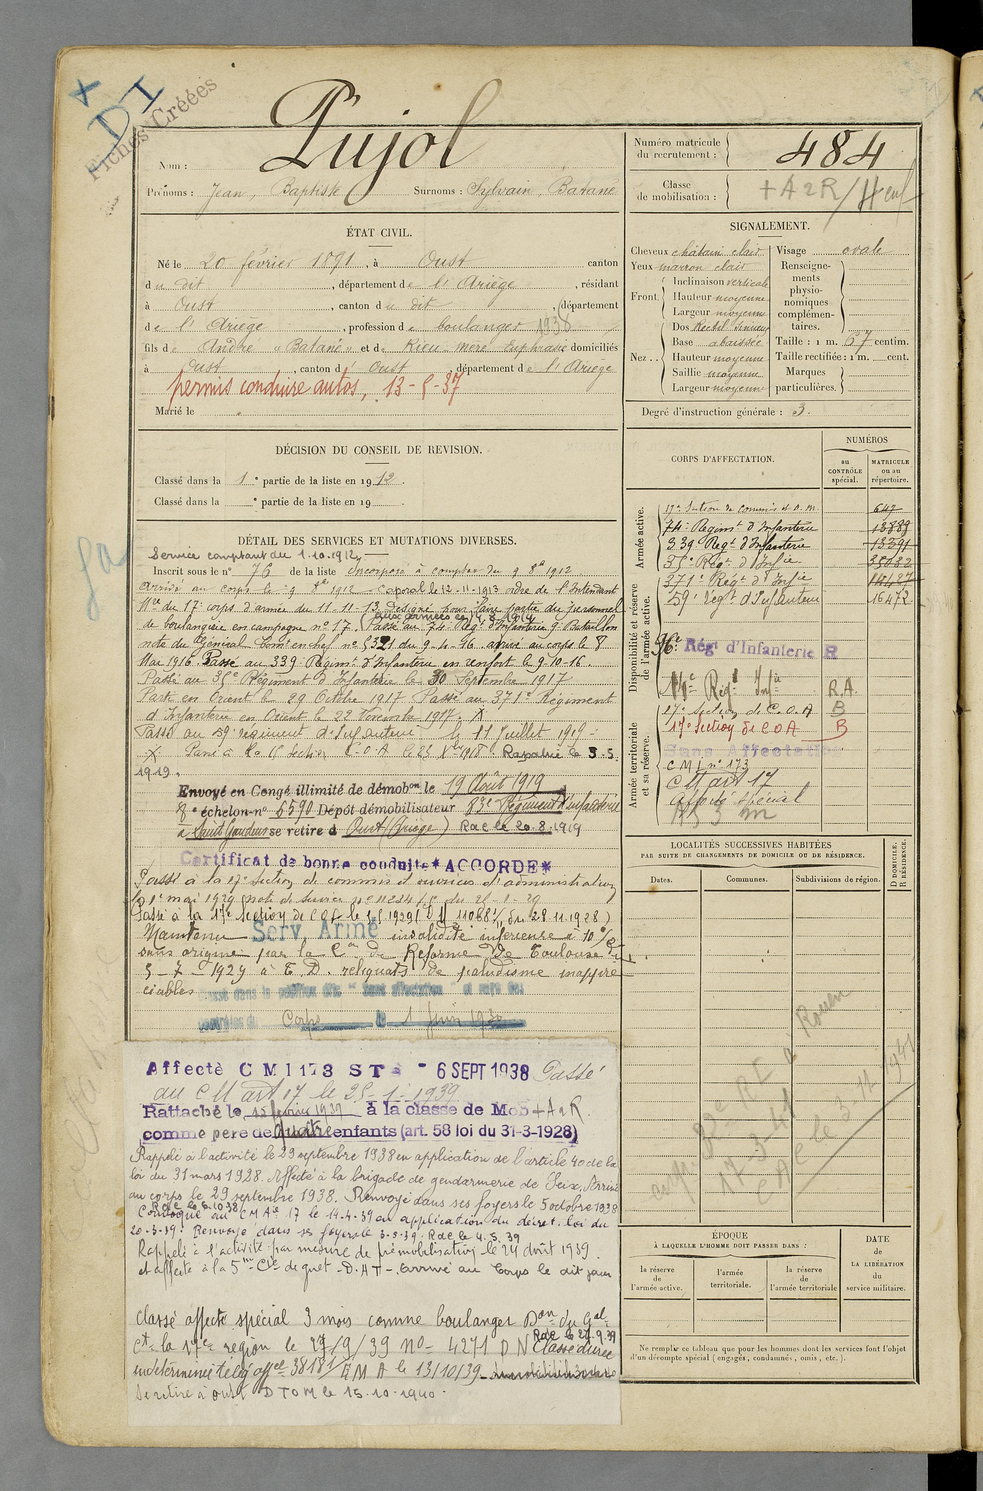 Fiches Créées
DI
Nom : Pujol
Prénoms : Jean, Baptiste Surnoms : Sylvain, Batané
Numéro matricule du recrutement : 484
Classe de mobilisation : + A 2 R /
ÉTAT CIVIL.
Né le 20 février 1891, à Oust canton
du dit, département de l'Ariège, résidant
à Oust, canton du dit, département
de l'Ariège, profession de boulanger 1938
fils de André "Batané" et de Rieu-Mère Euphrasie domiciliés
à Oust, canton d'Oust, département de l'Ariège
permis conduire autos, 13-5-37
Marié le
SIGNALEMENT.
Cheveux châtain clair
Yeux marron clair
Front. Inclinaison verticale
Hauteur moyenne
Largeur moyenne
Nez.. Dos Rectil. Sinueux
Base abaissée
Hauteur moyenne
Saillie moyenne
Largeur moyenne
Visage ovale
Renseignements physionomiques complémentaires.
Taille : 1 m. 67 centim.
Taille rectifiée : 1 m. cent.
Marques particulières.
Degré d'instruction générale : 3.
DÉCISION DU CONSEIL DE REVISION.
Classé dans la 1e partie de la liste en 1912.
Classé dans la e partie de la liste en 19 .
DÉTAIL DES SERVICES ET MUTATIONS DIVERSES.
Service comptant du 1.10.1912
Inscrit sous le n° 76 de la liste Incorporé à compter du 9 8bre 1912
Arrivé au corps le 9 8bre 1912 Caporal le 12.11.1913 ordre de l'Intendant
Mre du 17e corps d'armée du 11.11.13, désigné pour faire partie du personnel
de boulangerie en campagne n° 17. (aux armées le 4.8.1914) Passé au 74e Régt d'Infanterie 9e Bataillon
note du Général Comt en chef n° 5321 du 9.4.16 arrivé au corps le 8
Mai 1916. Passé au 339e Régimt d'Infanterie en renfort le 9.10.16.
Passé au 35e Régiment d'Infanterie le 30 Septembre 1917
Parti en Orient le 29 Octobre 1917. Passé au 371e Régiment
d'Infanterie en Orient le 22 Novembre 1917. X
Passé au 59e régiment d'Infanterie le 11 Juillet 1919.
X Passé à la 15e Section C.O.A le 23 Xbre 1918. Rapatrié le 5.5.
1919.
Envoyé en Congé illimité de démobon le 19 Août 1919
8e échelon no 6590 Dépôt démobilisateur 83e Régiment d'Infanterie
à Saint Gaudens se retire à Oust (Ariège) Rac le 20.8.1919
Certificat de bonne conduite *ACCORDÉ*
Passé à la 17e Section de commis et ouvriers d'administration
le 1er mai 1929
Passé à la 17e Section de C.O.A le 1.5.1929 (D.M. 11088 du 28.11.1928)
Maintenu Serv. Armé invalidité inférieure à 10%
sans origine par la Con de Réforme de Toulouse du
5-7-1929 à T.D. reliquats de paludisme inappré
ciables
Classé dans la position dite "Sans affectation"
Corps le 1 Juin 1930
Affecté C M I 173 ST 6 SEPT 1938 Passé
au C M art 17 le 25-1-1939
Rattaché le 15 février 1939 à la classe de Mob + A 2 R.
comme père de quatre enfants (art. 58 loi du 31-3-1928)
Rappelé à l'activité le 29 septembre 1938 en application de l'article 40 de la
loi du 31 mars 1928. Affecté à la brigade de gendarmerie de Seix. Arrivé
au corps le 29 septembre 1938. Renvoyé dans ses foyers le 5 octobre 1938
Rac le 6.10.38
Convoqué au CMAe 17 le 14.4.39 en application du décret-loi du
20-3-39. Renvoyé dans ses foyers le 3.5.39. Rac le 4.5.39
Rappelé à l'activité par mesure de prémobilisation le 24 août 1939.
et affecté à la 5me Cie de guet - D.A.T - arrivé au Corps le dit jour
Classé affecté spécial 3 mois comme boulanger Don du Gal
Ct la 17e région le 17/9/39 No 4271 D N Rac le 27.9.39 Classé durée
indéterminée 38181/ E M A le 13/10/39
Se retire à Oust D T O M le 15.10.1940.
CORPS D'AFFECTATION.
NUMÉROS
au CONTRÔLE spécial.
MATRICULE ou au répertoire.
Armée active.
Disponibilité et réserve de l'armée active.
Armée territoriale et sa réserve.
17e Section de commis et O. M. 647
74e Regimt d'Infanterie 13889
339 Regt d'Infanterie 13391
35e Régt d'Infie
371e Régt d'Infie 14427
59e Régt d'Infanterie 16472
96e Régt d'Infanterie R
Régt Infie R.A.
17e Section de C.O.A B
17e Section de C O A B
Sans Affectation
C M I n° 173
C M art 17
Affecté Spécial
LOCALITÉS SUCCESSIVES HABITÉES
PAR SUITE DE CHANGEMENTS DE DOMICILE OU DE RÉSIDENCE.
Dates. Communes. Subdivisions de région.
D DOMICILE.
R RÉSIDENCE.
à Rouen
17-3-41
le 3 11 1941
ÉPOQUE
À LAQUELLE L'HOMME DOIT PASSER DANS :
la réserve de l'armée active.
l'armée territoriale.
la réserve de l'armée territoriale
DATE DE LA LIBÉRATION du service militaire.
Ne remplir ce tableau que pour les hommes dont les services font l'objet
d'un décompte spécial (engagés, condamnés, omis, etc.).